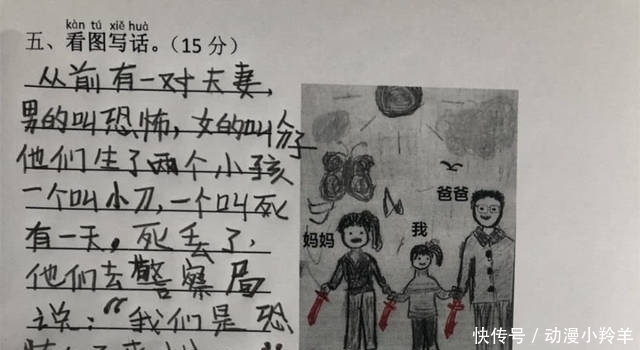 kàn tú xiě huà
五、看图写话。（15 分）
从前有一对夫妻，
男的叫恐怖，女的叫分子
他们生了两个小孩
一个叫小刀，一个叫死
有一天，死丢了，
他们去警察局
说：“我们是恐
妈妈
我
爸爸
快传号 / 动漫小羚羊